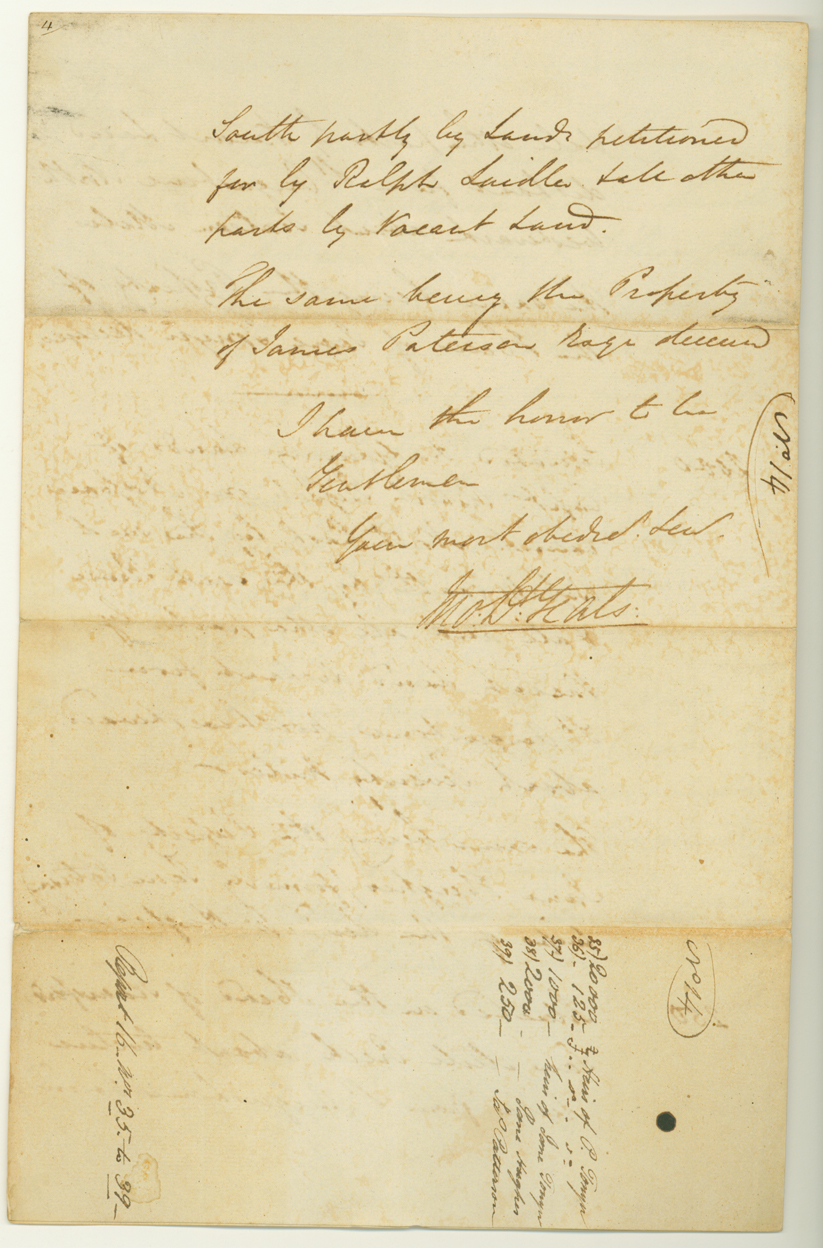 4
South partly by Lands petitioned
for by Ralph Laidler & all other
parts by Vacant Land.
The same being the Property
of James Paterson Esqr deceased
I have the honor to be
Gentlemen
Your most obedt. Sert.
No 14
No 14
35) 20000 Heirs of P. Tonyn
36) - 125 -
37) 1000 - heirs of Jane Tonyn
38) 2000 - Jane Hughes
39) 250 - Jas Patterson
Report 16. No. 35. to 39